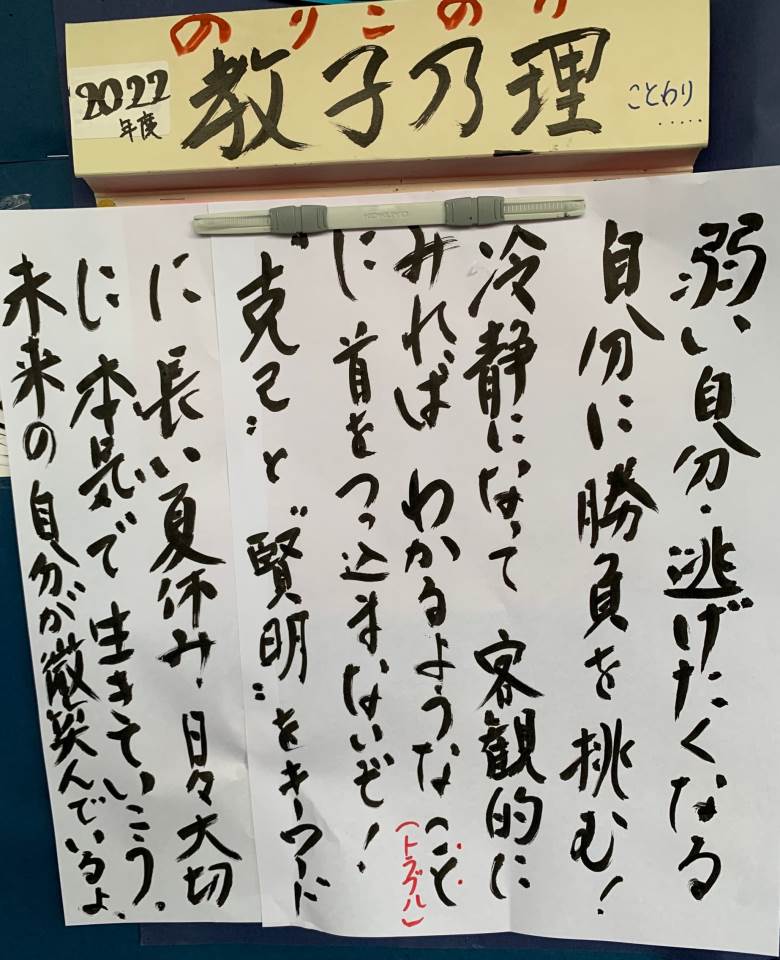 のりこのり
2022
年度
教子乃理
ことわり
弱い自分・逃げたくなる
自分に勝負を挑む!
冷静になって 客観的に
みれば わかるようなこと
(トラブル)
に首をつっ込まないぞ!
"克己"と"賢明"をキーワード
に長い夏休み、日々大切
に本気で生きていこう。
未来の自分が微笑んでいるよ。